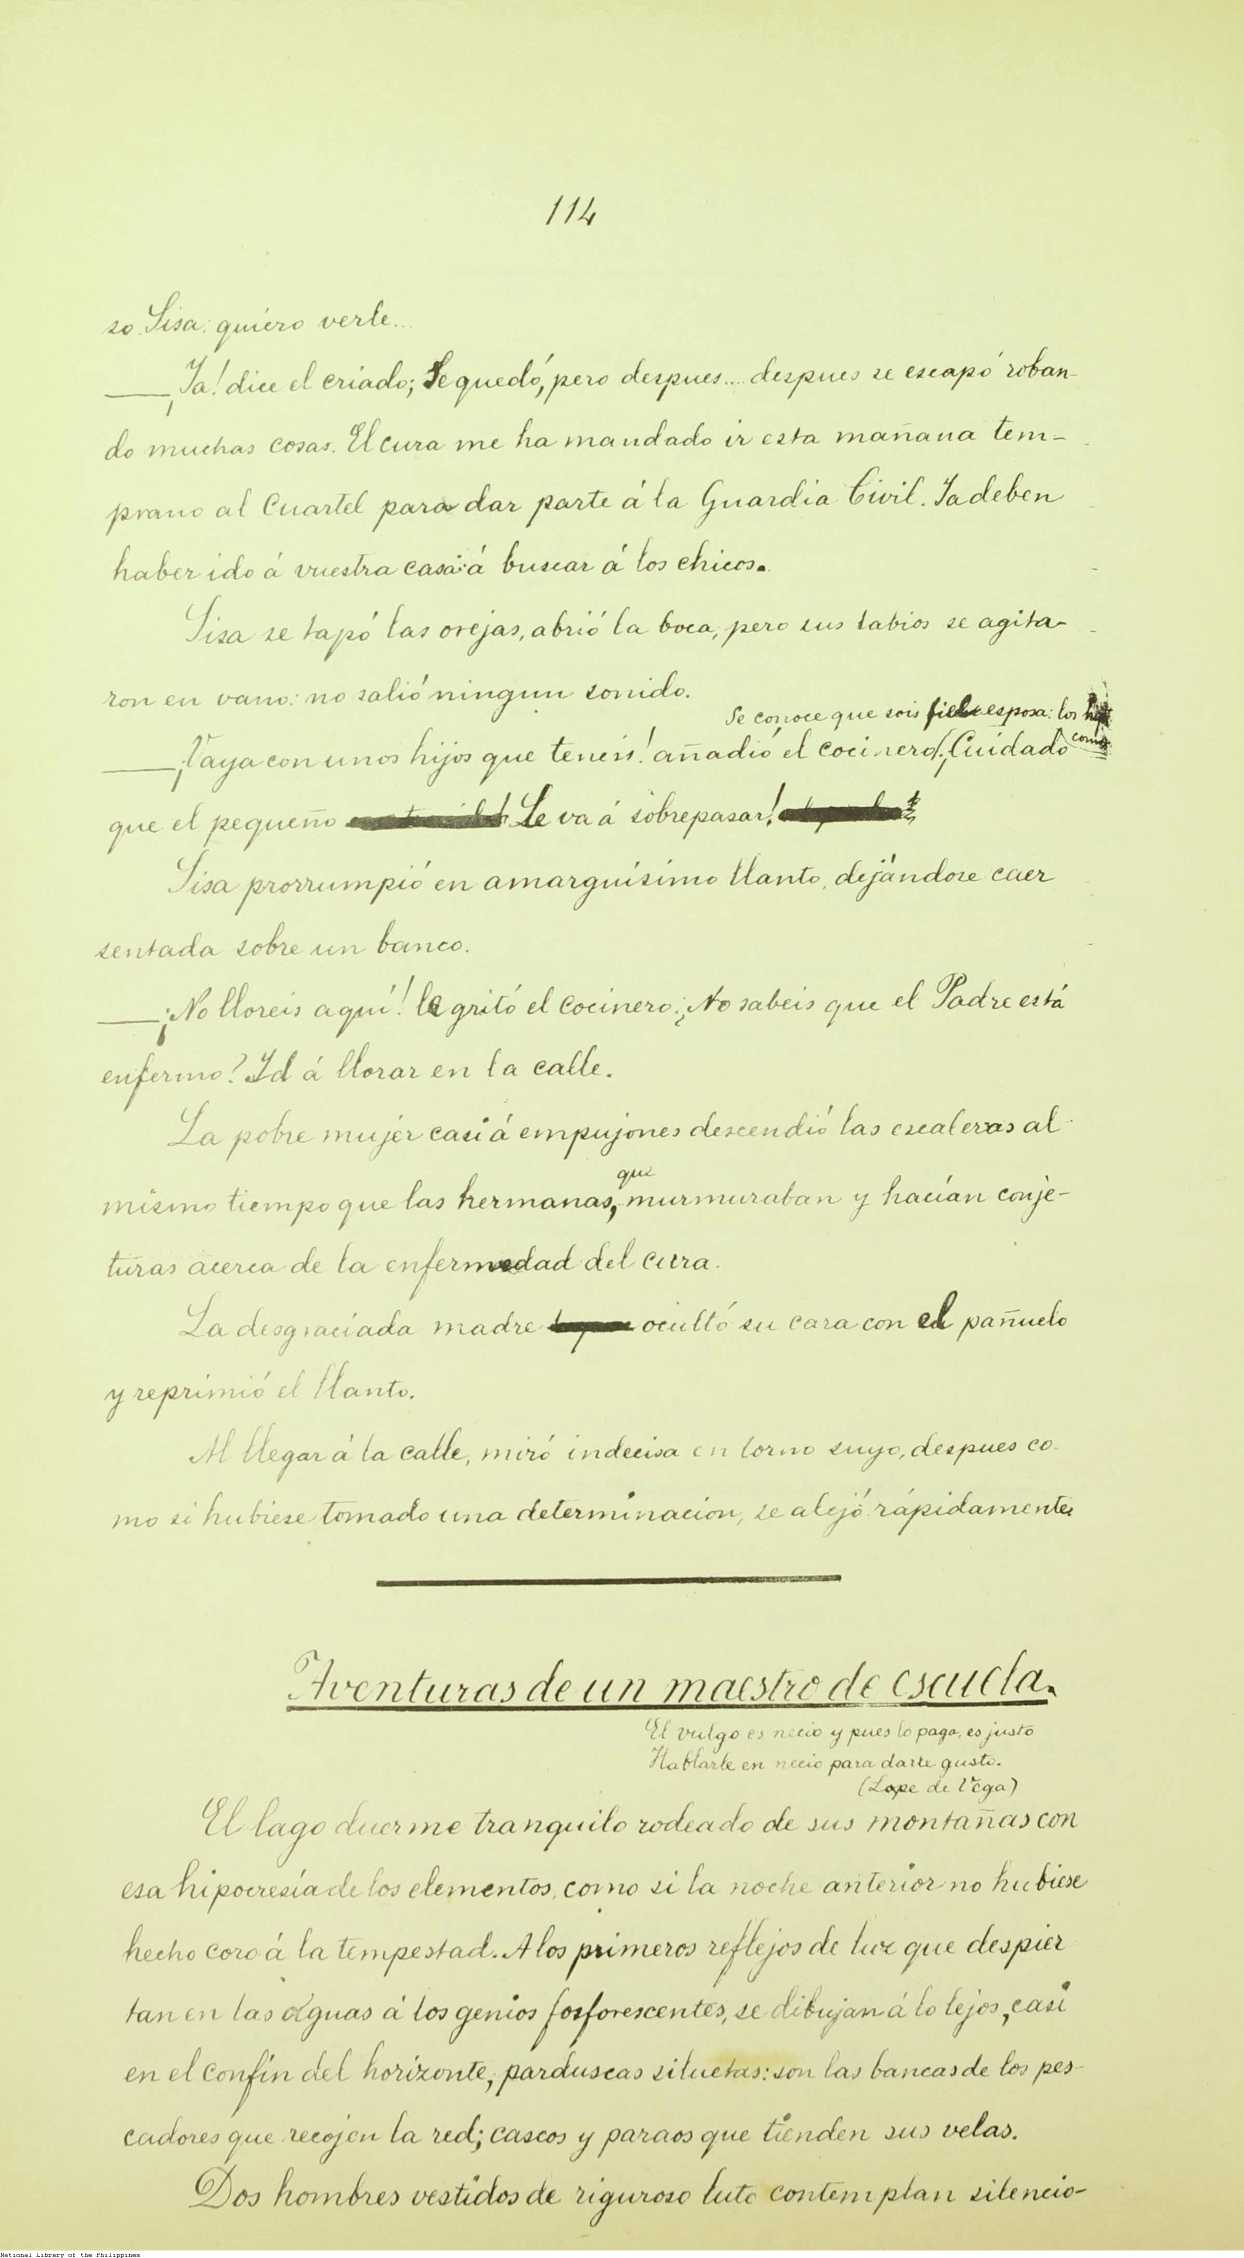 114
so Sisa: quiero verle...
—¡Ya! dice el criado; Se quedó, pero despues.... despues se escapó roban-
do muchas cosas. El cura me ha mandado ir esta mañana tem-
prano al Cuartel para dar parte á la Guardia Civil. Ya deben
haber ido á vuestra casa á buscar á los chicos.
Sisa se tapó las orejas, abrió la boca, pero sus labios se agita-
ron en vano: no salió ningun sonido.
Se conoce que sois fiel esposa: los
como
—¡Vaya con unos hijos que teneis! añadió el cocinero. ¡Cuidado
que el pequeño Le va á sobrepasar!
Sisa prorrumpió en amarguísimo llanto, dejándose caer
sentada sobre un banco.
—¡No lloreis aquí! le gritó el cocinero: ¿No sabeis que el Padre está
enfermo? Id á llorar en la calle.
La pobre mujer casi á empujones descendió las escaleras al
que
mismo tiempo que las hermanas, murmuraban y hacían conje-
turas acerca de la enfermedad del cura.
La desgraciada madre ocultó su cara con el pañuelo
y reprimió el llanto.
Al llegar á la calle, miró indecisa en torno suyo, despues co-
mo si hubiese tomado una determinacion, se alejó rápidamente
Aventuras de un maestro de escuela.
El vulgo es necio y pues lo paga, es justo
Hablarle en necio para darle gusto.
(Lope de Vega)
El lago duerme tranquilo rodeado de sus montañas con
esa hipocresía de los elementos, como si la noche anterior no hubiese
hecho coro á la tempestad. A los primeros reflejos de luz que despier
tan en las aguas á los genios fosforescentes, se dibujan á lo lejos, casi
en el confín del horizonte, parduscas siluetas: son las bancas de los pes-
cadores que recojen la red; cascos y paraos que tienden sus velas.
Dos hombres vestidos de riguroso luto contemplan silencio-
National Library of the Philippines